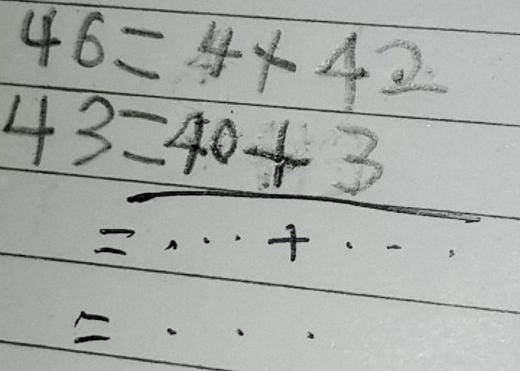 46 = 4 + 42
43 = 40 + 3
= ... + ...
= ...